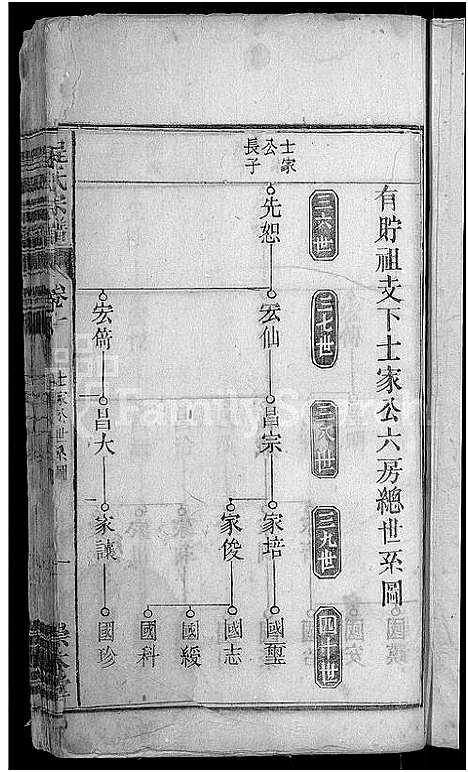 有貯祖支下士家公六房總世系圖
三六世
三七世
三八世
三九世
四十世
士家
公
長子
先恕
宏仙
昌宗
家培
國璽
家俊
國志
國綬
國科
宏備
昌大
家讓
國珍
氏宗譜
卷
士家公世系圖
FamilySearch